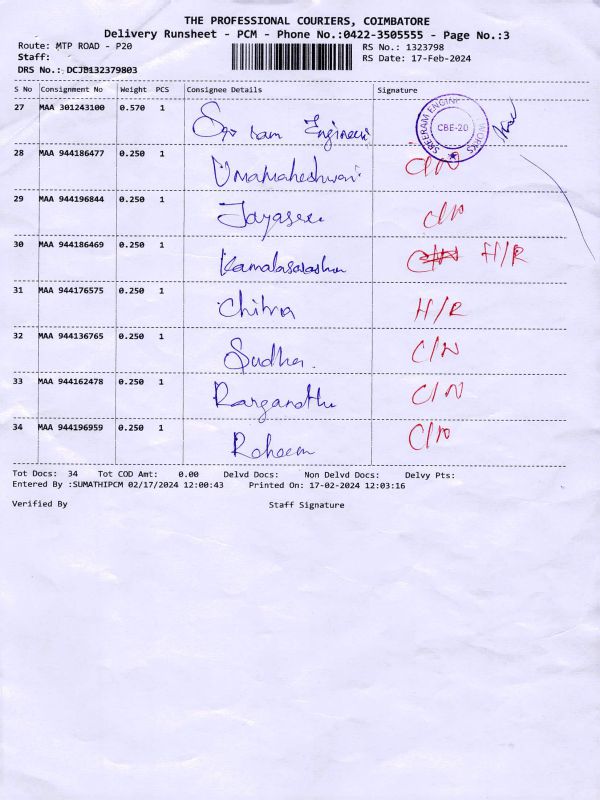 THE PROFESSIONAL COURIERS, COIMBATORE
Delivery Runsheet - PCM - Phone No.:0422-3505555 - Page No.:3
Route: MTP ROAD - P20 RS No.: 1323798
Staff: RS Date: 17-Feb-2024
DRS No.: DCJB132379803
S No Consignment No Weight PCS Consignee Details Signature
27 MAA 301243100 0.570 1 Sri ram Engineeri
SREERAM ENGINE WORKS CBE-20
28 MAA 944186477 0.250 1 Umamaheshwari C/N
29 MAA 944196844 0.250 1 Jayasree C/N
30 MAA 944186469 0.250 1 H/R
31 MAA 944176575 0.250 1 Chitra H/R
32 MAA 944136765 0.250 1 Sudha. C/N
33 MAA 944162478 0.250 1 C/N
34 MAA 944196959 0.250 1 Raheem C/N
Tot Docs: 34 Tot COD Amt: 0.00 Delvd Docs: Non Delvd Docs: Delvy Pts:
Entered By :SUMATHIPCM 02/17/2024 12:00:43 Printed On: 17-02-2024 12:03:16
Verified By Staff Signature